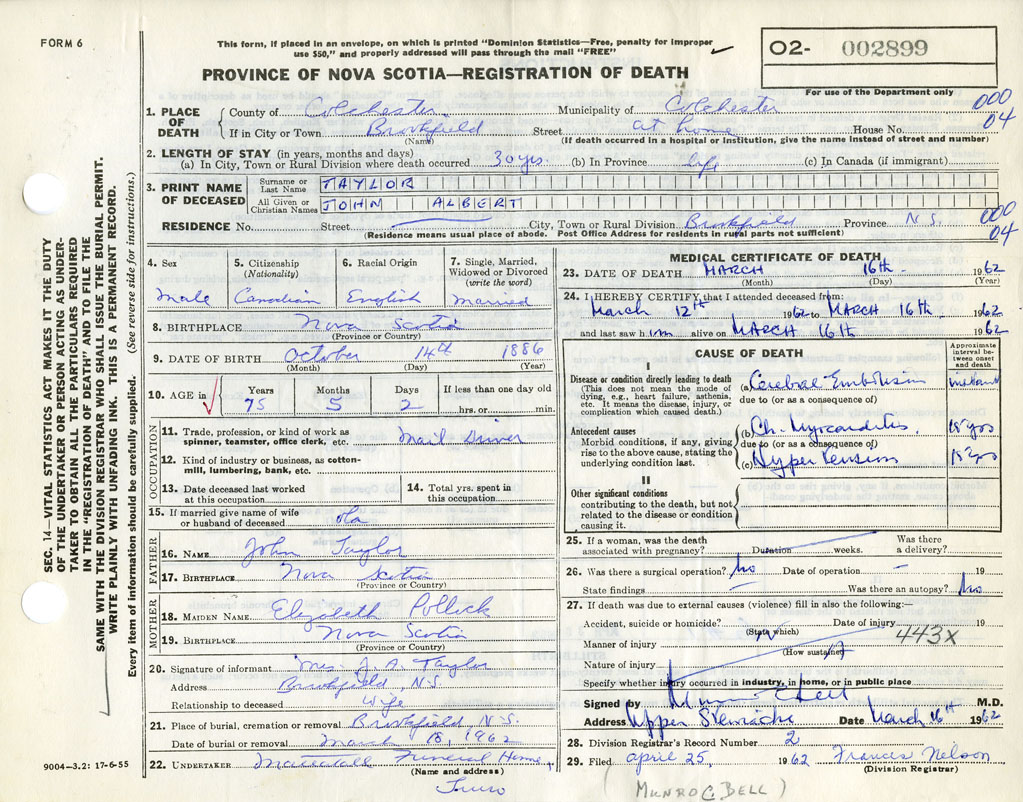 FORM 6
This form, if placed in an envelope, on which is printed "Dominion Statistics—Free, penalty for improper
use $50," and properly addressed will pass through the mail "FREE"
PROVINCE OF NOVA SCOTIA—REGISTRATION OF DEATH
O2- 002899
For use of the Department only
SEC. 14—VITAL STATISTICS ACT MAKES IT THE DUTY
OF THE UNDERTAKER OR PERSON ACTING AS UNDER-
TAKER TO OBTAIN ALL THE PARTICULARS REQUIRED
IN THE "REGISTRATION OF DEATH" AND TO FILE THE
SAME WITH THE DIVISION REGISTRAR WHO SHALL ISSUE THE BURIAL PERMIT.
WRITE PLAINLY WITH UNFADING INK. THIS IS A PERMANENT RECORD.
Every item of information should be carefully supplied. (See reverse side for instructions.)
1. PLACE OF DEATH
County of Colchester Municipality of Colchester
000
04
If in City or Town Brookfield Street at home House No.
(Name) (If death occurred in a hospital or institution, give the name instead of street and number)
2. LENGTH OF STAY (in years, months and days)
(a) In City, Town or Rural Division where death occurred 30 yrs. (b) In Province life (c) In Canada (if immigrant)
3. PRINT NAME OF DECEASED
Surname or Last Name TAYLOR
All Given or Christian Names JOHN ALBERT
RESIDENCE No. Street City, Town or Rural Division Brookfield Province N.S.
000
04
(Residence means usual place of abode. Post Office Address for residents in rural parts not sufficient)
4. Sex
Male
5. Citizenship (Nationality)
Canadian
6. Racial Origin
English
7. Single, Married, Widowed or Divorced (write the word)
Married
8. BIRTHPLACE Nova Scotia
(Province or Country)
9. DATE OF BIRTH October 14th 1886
(Month) (Day) (Year)
10. AGE in
Years Months Days If less than one day old
75 5 2 hrs. or min.
OCCUPATION
11. Trade, profession, or kind of work as
spinner, teamster, office clerk, etc. Mail Driver
12. Kind of industry or business, as cotton-
mill, lumbering, bank, etc.
13. Date deceased last worked
at this occupation
14. Total yrs. spent in
this occupation
15. If married give name of wife
or husband of deceased Ola
FATHER
16. NAME John Taylor
17. BIRTHPLACE Nova Scotia
(Province or Country)
MOTHER
18. MAIDEN NAME Elizabeth Pollock
19. BIRTHPLACE Nova Scotia
(Province or Country)
20. Signature of informant Mrs. J. A. Taylor
Address Brookfield, N.S.
Relationship to deceased Wife
21. Place of burial, cremation or removal Brookfield N.S.
Date of burial or removal March 18, 1962
22. UNDERTAKER Funeral Home,
(Name and address)
Truro
9004—3.2: 17-6-55
MEDICAL CERTIFICATE OF DEATH
23. DATE OF DEATH MARCH 16th 1962
(Month) (Day) (Year)
24. I HEREBY CERTIFY that I attended deceased from:
March 12th 1962 to MARCH 16th 1962
and last saw him alive on MARCH 16th 1962
CAUSE OF DEATH
Approximate interval between onset and death
I
Disease or condition directly leading to death
(This does not mean the mode of
dying, e.g., heart failure, asthenia,
etc. It means the disease, injury, or
complication which caused death.)
(a) Cerebral Embolism instant
due to (or as a consequence of)
Antecedent causes
Morbid conditions, if any, giving
rise to the above cause, stating the
underlying condition last.
(b) Ch. Myocarditis 15 yrs
due to (or as a consequence of)
(c) Hypertension 15 yrs
II
Other significant conditions
contributing to the death, but not
related to the disease or condition
causing it.
25. If a woman, was the death
associated with pregnancy? Duration weeks. Was there a delivery?
26. Was there a surgical operation? No Date of operation — 19
State findings — Was there an autopsy? No
27. If death was due to external causes (violence) fill in also the following:—
Accident, suicide or homicide? Date of injury 19
(State which)
443X
Manner of injury
(How sustained)
Nature of injury
Specify whether injury occurred in industry, in home, or in public place
Signed by Munro C Bell M.D.
Address Upper Stewiacke Date March 16th 1962
28. Division Registrar's Record Number 2
29. Filed April 25, 1962 Francis Nelson
(Division Registrar)
(MUNRO C. BELL)